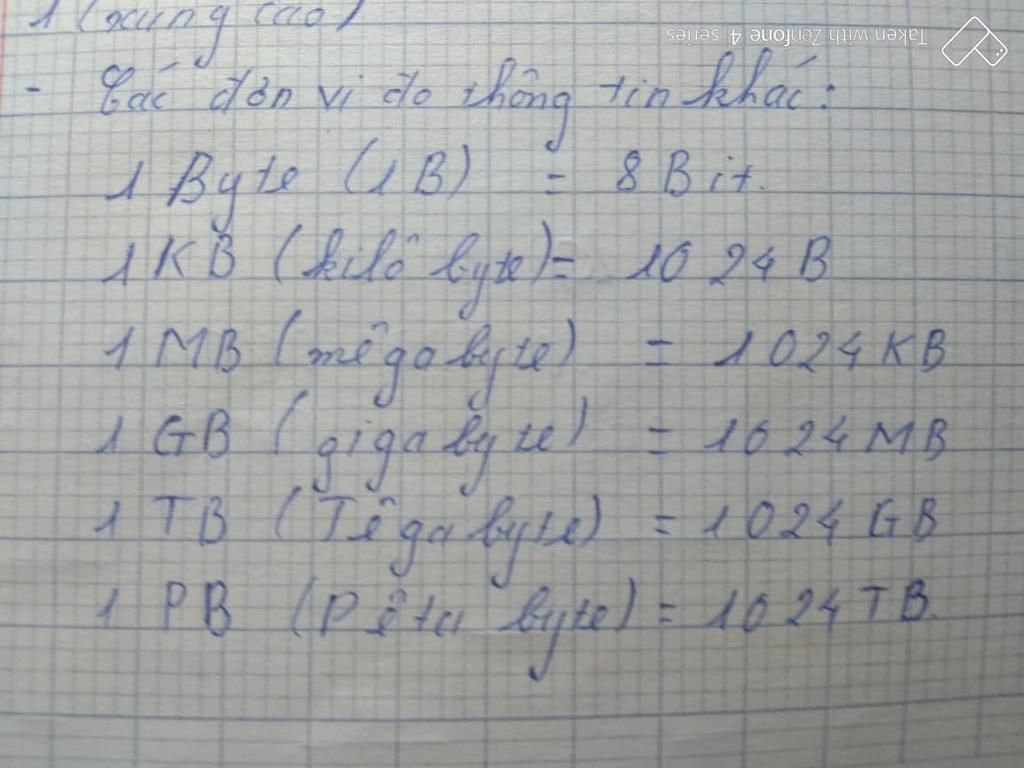 1 (xung cao)
Taken with Zenfone 4 series
- Các đơn vi đo thông tin khác:
1 Byte (1B) = 8 Bit.
1 KB (kilô byte) = 1024 B
1 MB (mêgabyte) = 1024 KB
1 GB (gigabyte) = 1024 MB
1 TB (Têgabyte) = 1024 GB
1 PB (Pêta byte) = 1024 TB.